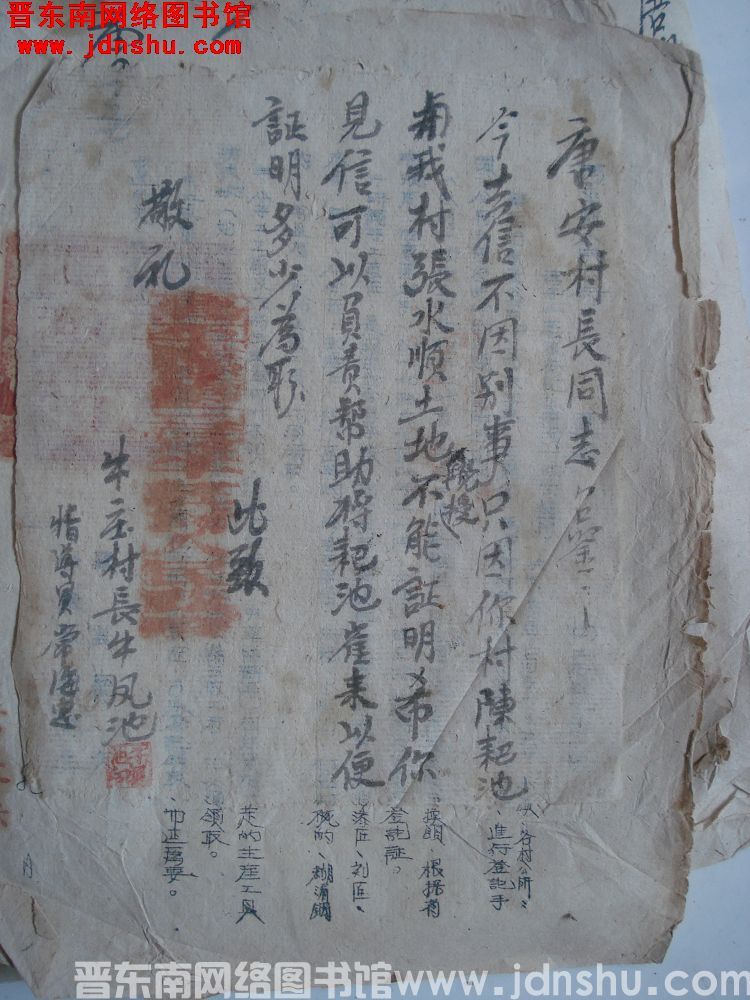 晋东南网络图书馆
www.jdnshu.com
唐安村長同志台鉴
今去信不因别事只因你村陳耙池
我村張水順土地不能証明希你
見信可以負責幇助将耙池崔来以便
証明多少為盼
此致
敬礼
牛庄村長牛凤池
指导員常海忠
各村公所
進行登記手
根据有
登記証。
漆匠、刘匠、
走的生產工具
領取。
為要。
月
晋东南网络图书馆 www.jdnshu.com